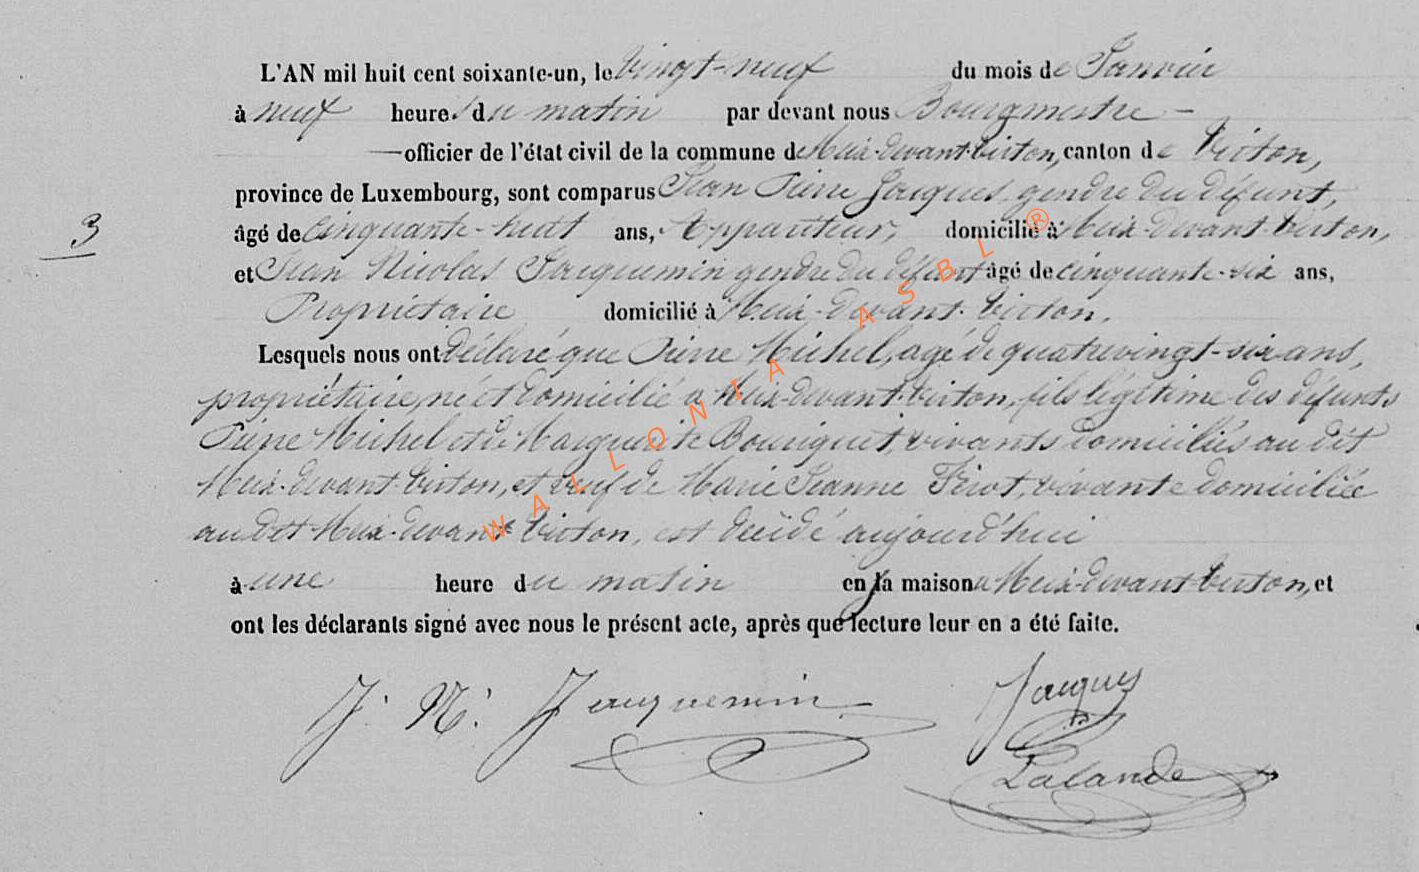 L'AN mil huit cent soixante-un, le vingt-neuf du mois de Janvier
à neuf heures du matin par devant nous Bourgmestre –
—officier de l'état civil de la commune de Meix-devant-Virton, canton de Virton,
province de Luxembourg, sont comparus Jean Pierre Jacques, gendre du défunt,
3
âgé de cinquante-huit ans, Appariteur, domicilié à Meix-devant-Virton,
et Jean Nicolas Jacquemin gendre du défunt âgé de cinquante-six ans,
Propriétaire domicilié à Meix-devant-Virton.
Lesquels nous ont déclaré que Pierre Michel, agé de quatrevingt-six ans,
propriétaire, né et domicilié a Meix-devant-Virton, fils légitime des défunts
Pierre Michel et de Marguerite Bouriquet, vivants domiciliés au dit
Meix-devant-Virton, et veuf de Marie Jeanne Firot, vivante domiciliée
au dit Meix-devant Virton, est décédé aujourd'hui
à une heure du matin en la maison a Meix-devant-Virton, et
ont les déclarants signé avec nous le présent acte, après que lecture leur en a été faite.
J. N. Jacquemin Jacques
Lalande
WALLONIA ASBL ®